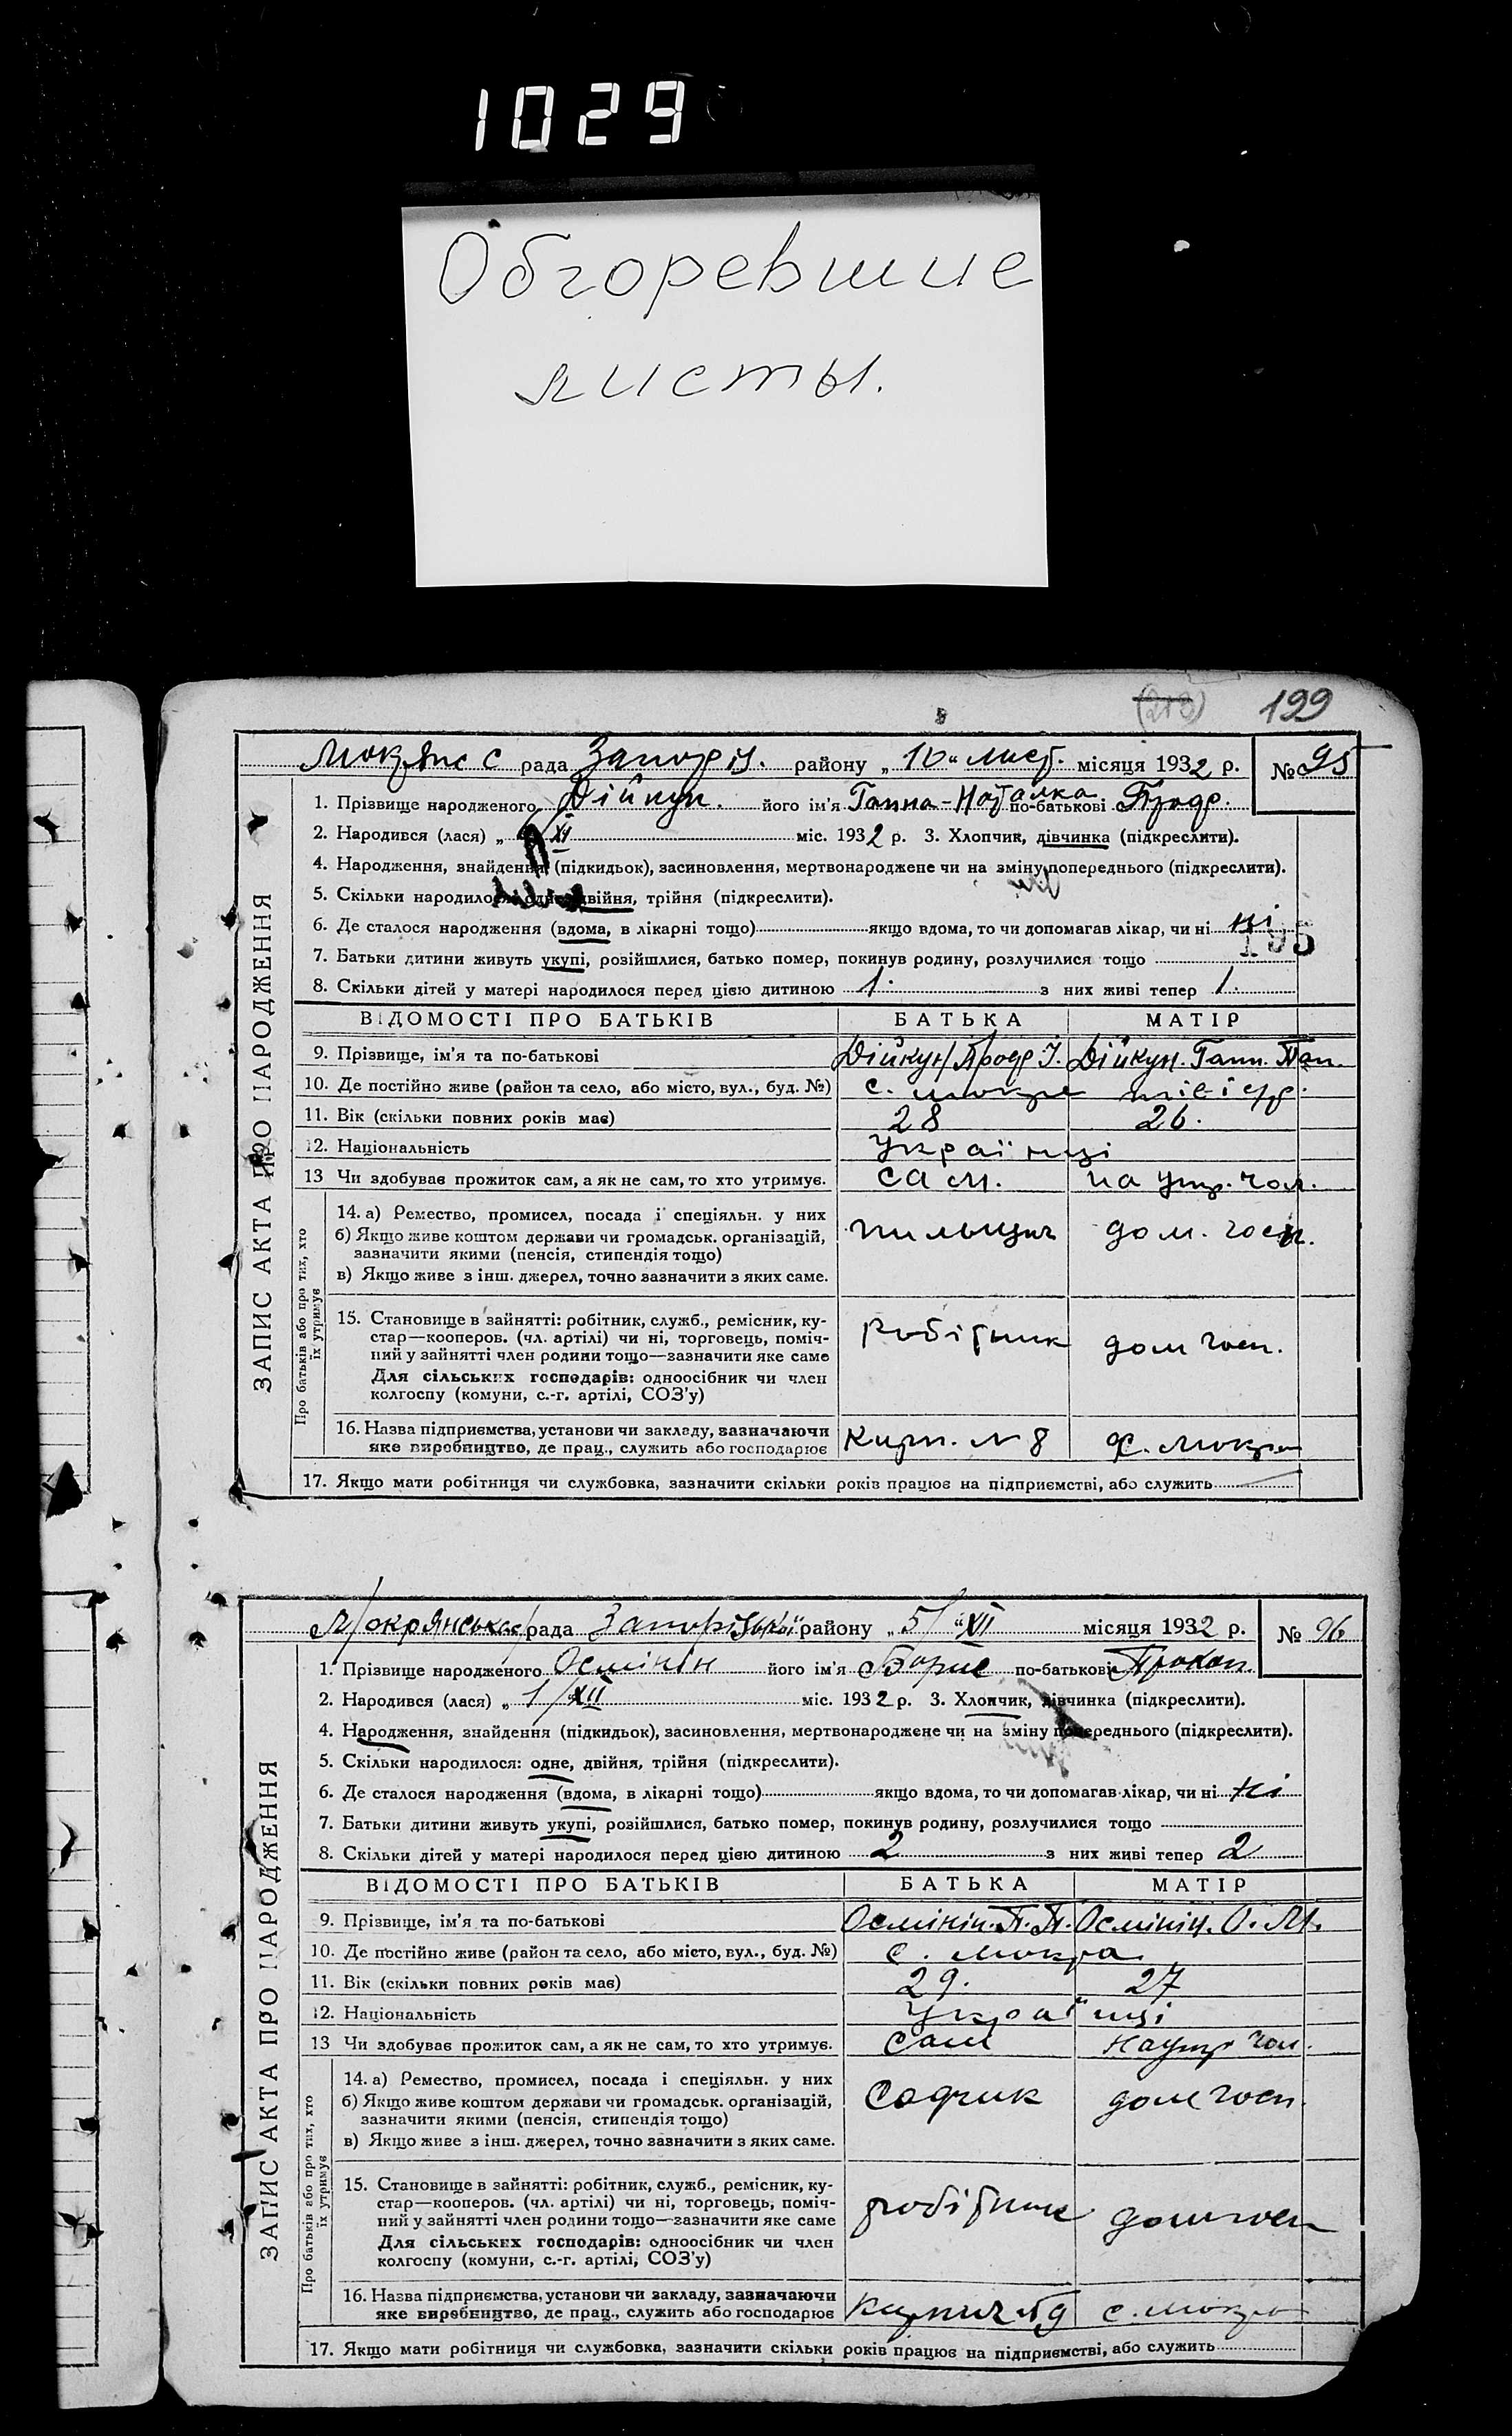 1029
Обгоревшие
листы.
(213) 199
Мокрянс с рада Запоріз. району „10“ лист. місяця 1932 р. № 95
1. Прізвище народженого Дійкун. його ім'я Ганна-Наталка по-батькові Прокр.
2. Народився (лася) „ XI міс. 1932 р. 3. Хлопчик, дівчинка (підкреслити).
4. Народження, знайдення (підкидьок), засиновлення, мертвонароджене чи на зміну попереднього (підкреслити).
5. Скільки народилося: одне, двійня, трійня (підкреслити).
6. Де сталося народження (вдома, в лікарні тощо) якщо вдома, то чи допомагав лікар, чи ні ні
195
7. Батьки дитини живуть укупі, розійшлися, батько помер, покинув родину, розлучилися тощо
8. Скільки дітей у матері народилося перед цією дитиною 1. з них живі тепер 1.
ЗАПИС АКТА ПРО НАРОДЖЕННЯ
ВІДОМОСТІ ПРО БАТЬКІВ БАТЬКА МАТІР
9. Прізвище, ім'я та по-батькові Дійкун І. Дійкун. Ганн. Пан.
10. Де постійно живе (район та село, або місто, вул., буд. №) с. Мокра
11. Вік (скільки повних років має) 28 26.
12. Національність Українці
13 Чи здобуває прожиток сам, а як не сам, то хто утримує. сам. на утр. чол.
Про батьків або про тих, хто їх утримує
14. а) Ремество, промисел, посада і спеціяльн. у них
б) Якщо живе коштом держави чи громадськ. організацій, пильщик дом. госп.
зазначити якими (пенсія, стипендія тощо)
в) Якщо живе з інш. джерел, точно зазначити з яких саме.
15. Становище в зайнятті: робітник, служб., ремісник, ку-
стар—кооперов. (чл. артілі) чи ні, торговець, поміч- робітник дом госп.
ний у зайнятті член родини тощо—зазначити яке саме
Для сільських господарів: одноосібник чи член
колгоспу (комуни, с.-г. артілі, СОЗ'у)
16. Назва підприємства, установи чи закладу, зазначаючи
яке виробництво, де прац., служить або господарює Кирп. N 8 с. Мокра
17. Якщо мати робітниця чи службовка, зазначити скільки років працює на підприємстві, або служить
Мокрянська рада Запорізької району „5“ XII місяця 1932 р. № 96
1. Прізвище народженого Осмінін його ім'я Борис по-батькові Прокоп.
2. Народився (лася) „ 1/XII міс. 1932 р. 3. Хлопчик, дівчинка (підкреслити).
4. Народження, знайдення (підкидьок), засиновлення, мертвонароджене чи на зміну попереднього (підкреслити).
5. Скільки народилося: одне, двійня, трійня (підкреслити).
6. Де сталося народження (вдома, в лікарні тощо) якщо вдома, то чи допомагав лікар, чи ні ні
7. Батьки дитини живуть укупі, розійшлися, батько помер, покинув родину, розлучилися тощо
8. Скільки дітей у матері народилося перед цією дитиною 2 з них живі тепер 2
ЗАПИС АКТА ПРО НАРОДЖЕННЯ
ВІДОМОСТІ ПРО БАТЬКІВ БАТЬКА МАТІР
9. Прізвище, ім'я та по-батькові Осмінін. П. П. Осмінін. О. М.
10. Де постійно живе (район та село, або місто, вул., буд. №) с. Мокра
11. Вік (скільки повних років має) 29. 27
12. Національність Українці
13 Чи здобуває прожиток сам, а як не сам, то хто утримує. сам на утр чол.
Про батьків або про тих, хто їх утримує
14. а) Ремество, промисел, посада і спеціяльн. у них
б) Якщо живе коштом держави чи громадськ. організацій, Садчик дом госп.
зазначити якими (пенсія, стипендія тощо)
в) Якщо живе з інш. джерел, точно зазначити з яких саме.
15. Становище в зайнятті: робітник, служб., ремісник, ку-
стар—кооперов. (чл. артілі) чи ні, торговець, поміч- робітник дом госп
ний у зайнятті член родини тощо—зазначити яке саме
Для сільських господарів: одноосібник чи член
колгоспу (комуни, с.-г. артілі, СОЗ'у)
16. Назва підприємства, установи чи закладу, зазначаючи
яке виробництво, де прац., служить або господарює с. Мокра
17. Якщо мати робітниця чи службовка, зазначити скільки років працює на підприємстві, або служить